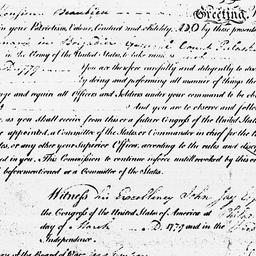 Greeting,
in your Patriotism, Valour, Conduct and Fidelity, DO by these presents
in Brigadier General Count Pulaski
in the Army of the United States, to take rank
D. 1779 You are therefore carefully and diligently to
by doing and performing all manner of things the
ge and require all Officers and Soldiers under your command to be ob
And you are to observe and follow
as you shall receive from this or a future Congress of the United States
appointed, a Committee of the States, or Commander in chief for the
tes, or any other your Superior Officer, according to the rules and disc
ed in you. This Commission to continue in force until revoked by this or
beforementioned or a Committee of the States.
Witness His Excellency John Jay Esq
the Congress of the United States of America at
day of March D. 1779 and in the
Independence.
y of the Board of War